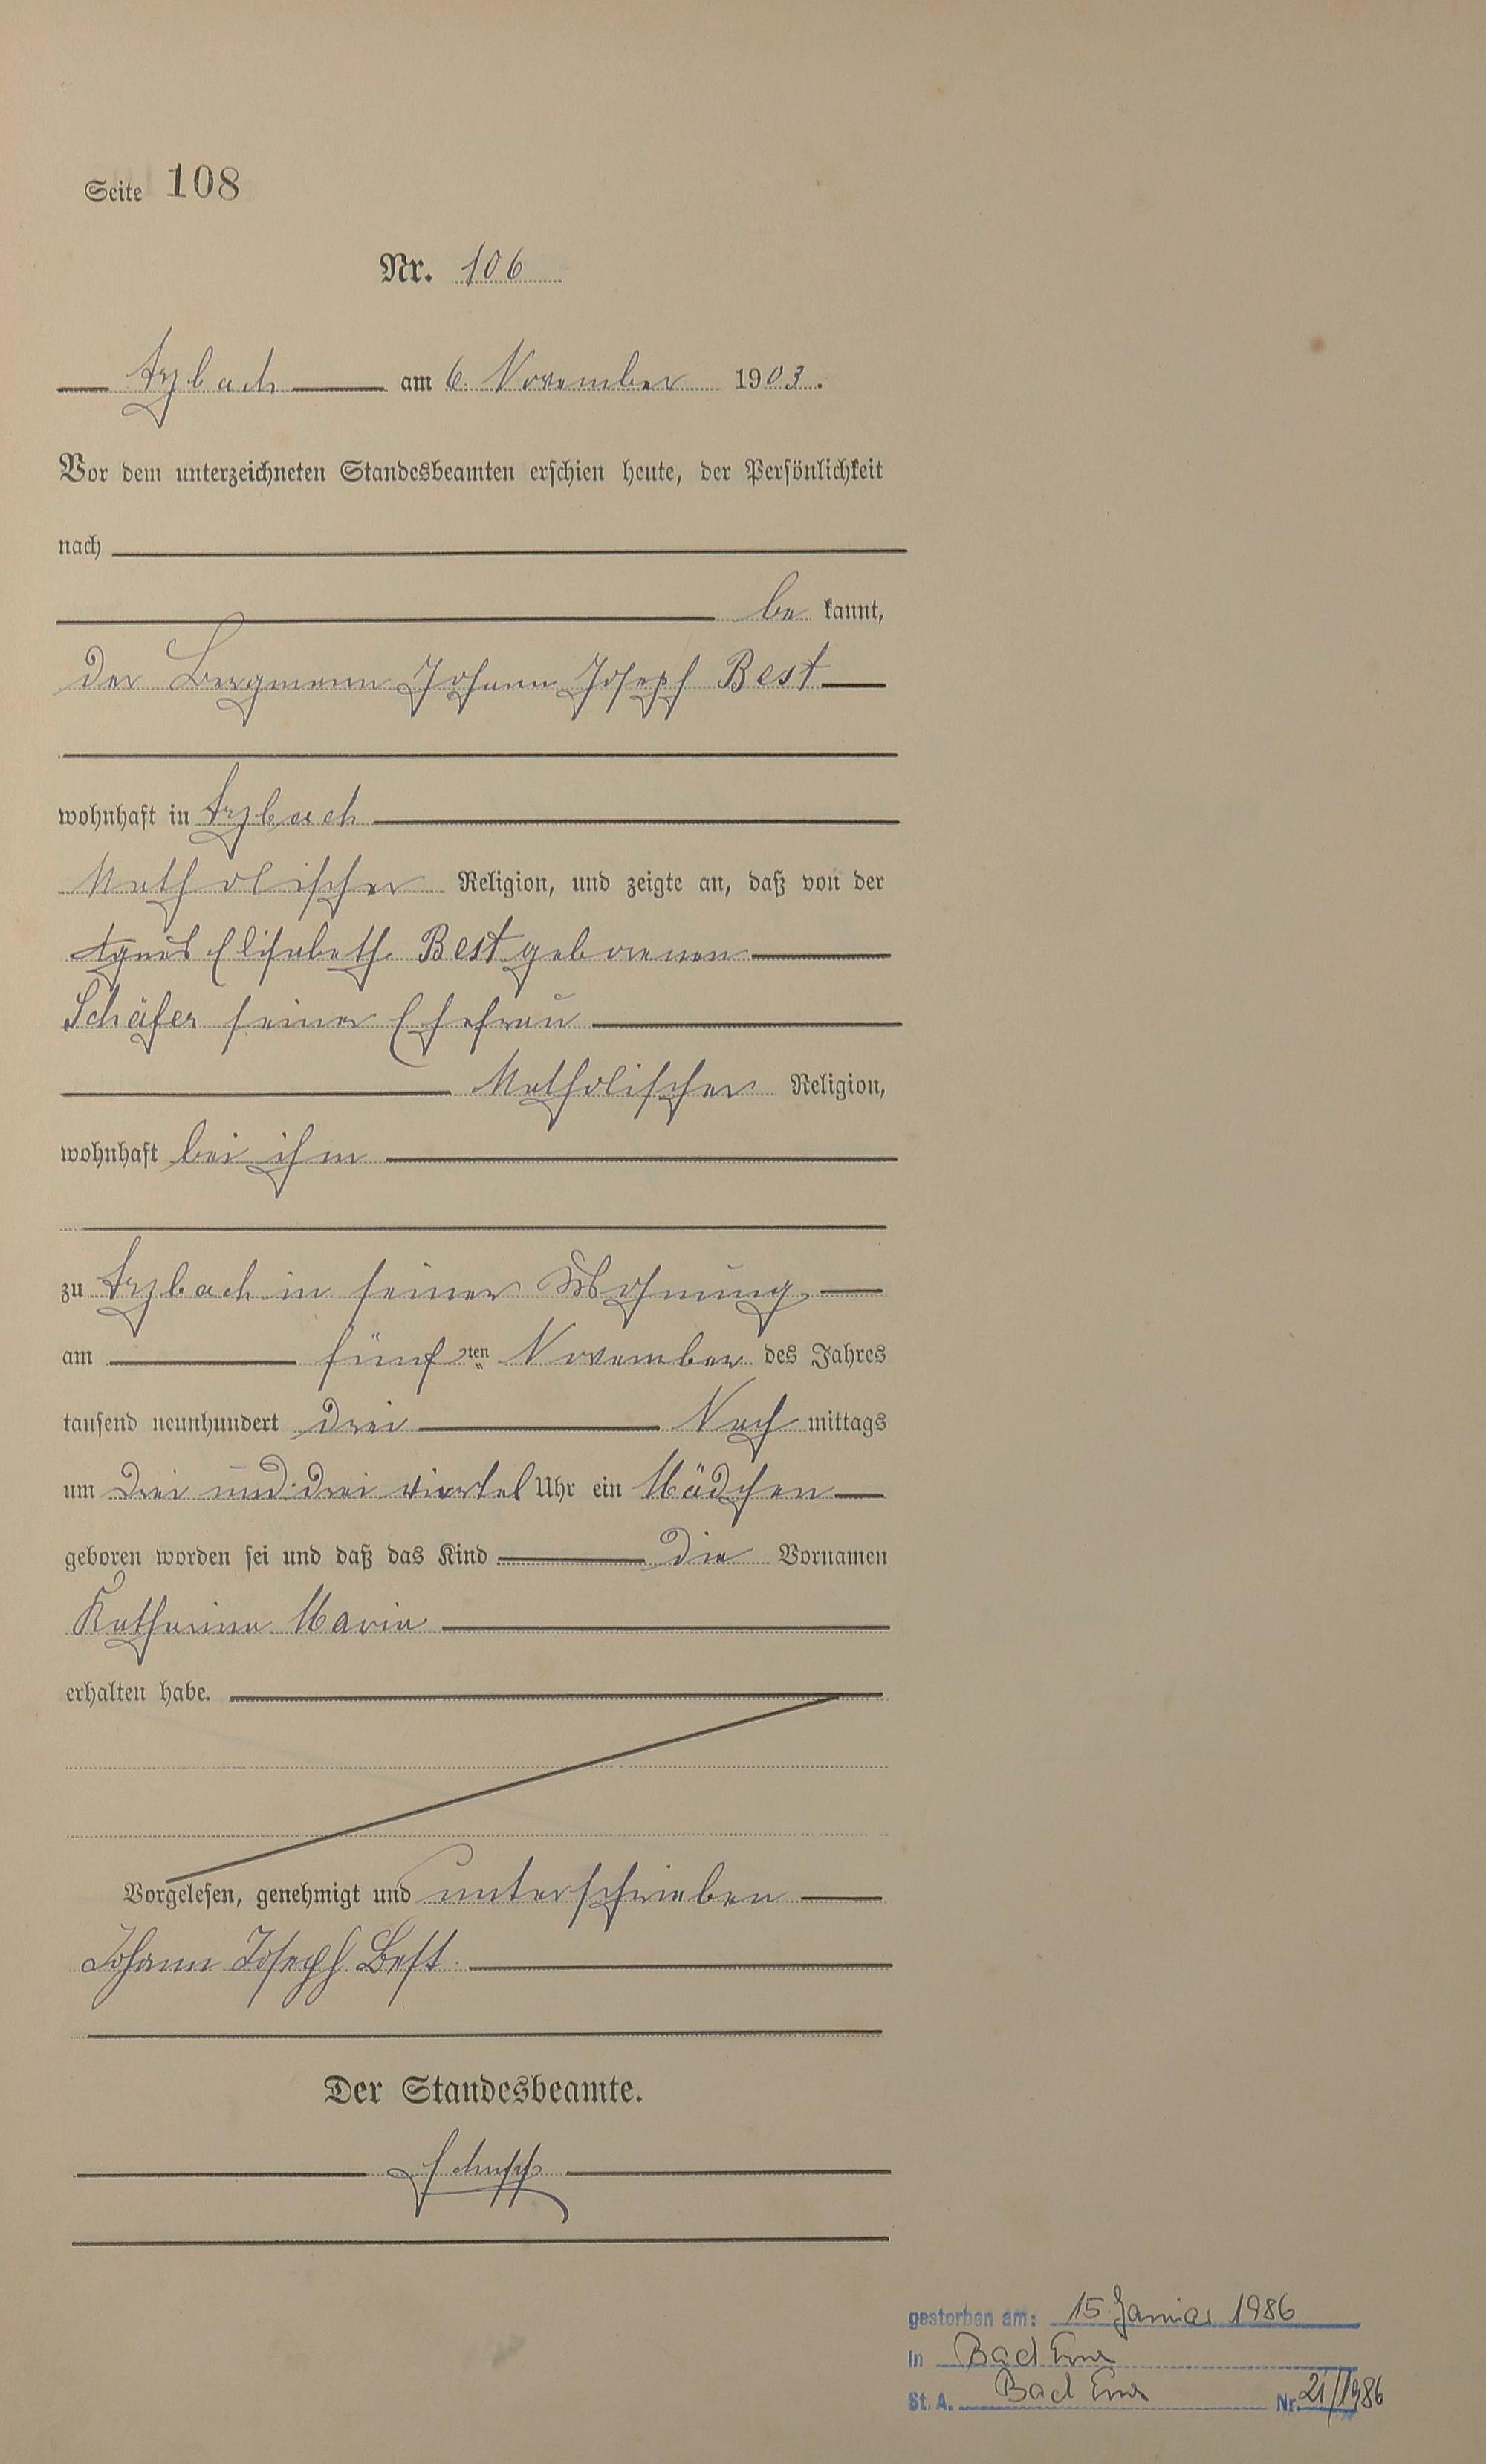 Seite 108
Nr. 106
Arzbach am 6. November 1903.
Vor dem unterzeichneten Standesbeamten erschien heute, der Persönlichkeit
nach
be kannt,
der Bergmann Johann Joseph Best
wohnhaft in Arzbach
Katholischer Religion, und zeigte an, daß von der
Agnes Elisabeth Best geborenen
Schäfer seiner Ehefrau
Katholischer Religion,
wohnhaft bei ihm
zu Arzbach in seiner Wohnung
am fünften November des Jahres
tausend neunhundert drei Nach mittags
um drei und drei viertel Uhr ein Mädchen
geboren worden sei und daß das Kind die Vornamen
Katharina Maria
erhalten habe.
Vorgelesen, genehmigt und unterschrieben
Johann Joseph Best
Der Standesbeamte.
gestorben am: 15. Januar 1986
in Bad Ems
St. A. Bad Ems Nr. 21/1986